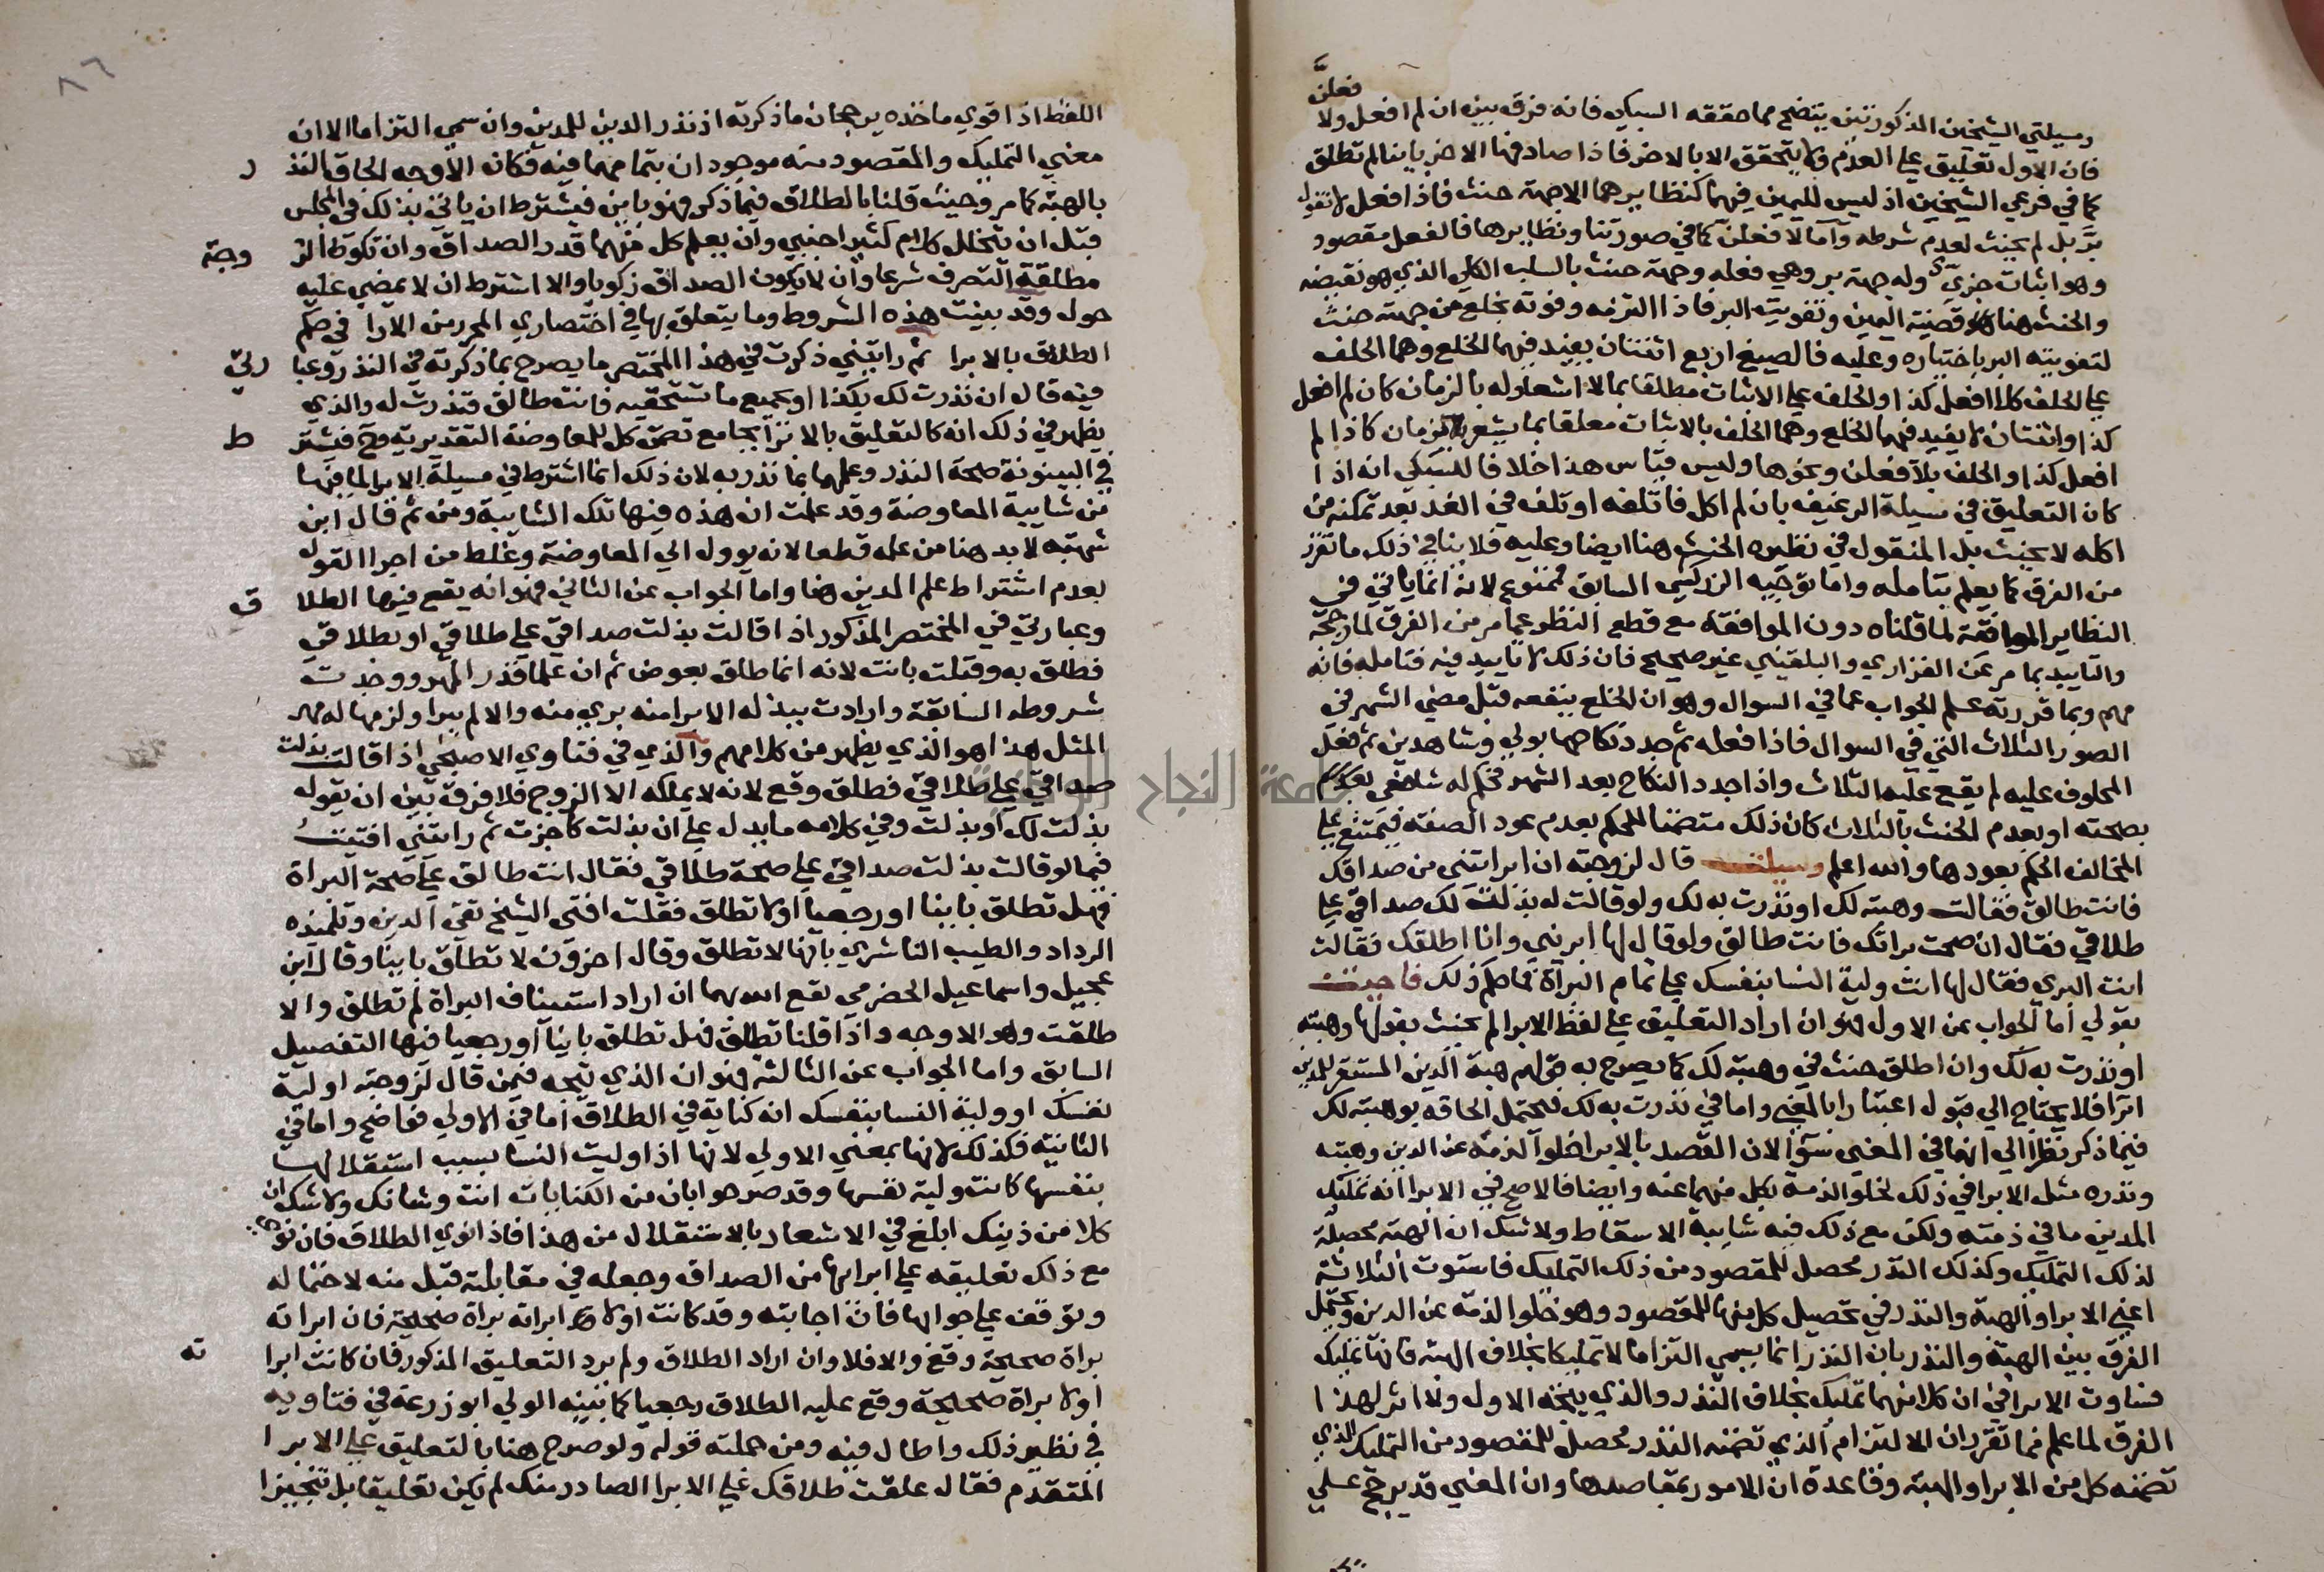 فعلنَّ
ومسيلتي الشيخين المذكورتين يتضح مما حققه السبكي فانه فرق بين ان لم افعل ولا
فان الاول تعليق على العدم ولا يتحقق الا بالاخر فاذا صادفها الاخر باينا لم تطلق
كما في فرعي الشيخين اذ ليس لليمين فيهما كنظايرهما الا جهة حنث فاذا فعل لا نقول
برَّ بل لم يحنث لعدم شرطه واما لافعلن كما في صورتنا ونظايرها فالفعل مقصود
وهو اثبات جزيّ وله جهة بر وهي فعله وجهة حنث بالسلب الكلي الذي هو نقيضه
والحنث هنا قضية اليمين وتفويت البر فاذا التزمه وفوته بخلع من جهته حنث
لتفويته البر باختياره وعليه فالصيغ اربع اثنتان يفيد فيهما الخلع وهما الحلف
على الحلف كلا افعل كذا والحلف على الاثبات مطلقا بما لا اشعار له بالزمان كان لم افعل
كذا واثنتان لا يفيد فيهما الخلع وهما الحلف بالاثبات معلقا بما يشعر بالزمان كاذا لم
افعل كذا والحلف بلافعلن ونحوها وليس قياس هذا خلافا للسبكي انه اذا
كان التعليق في مسيلة الرغيف بان لم اكل فاتلفه او تلف في الغد بعد تمكنه من
اكله لا يحنث بل المنقول في نظيره الحنث هنا ايضا وعليه فلا ينافي ذلك ما تقرر
من الفرق كما يعلم بتامله واما توجيه الزركشي السابق فممنوع لانه انما ياتي في
النظاير الموافقة لما قلناه دون الموافقة مع قطع النظر عما مر من الفرق لما رجحه
والتاييد بما مر عن الفزاري والبلقيني غير صحيح فان ذلك لا تاييد فيه فتامله فانه
مهم وبما قررته علم الجواب عما في السوال وهو ان الخلع ينفعه قبل مضي الشهر في
الصور الثلاث التي في السوال فاذا فعله ثم جدد نكاحها بولي وشاهدين ثم فعل
المحلوف عليه لم يقع عليه الثلاث واذا جدد النكاح بعد الشهر فحكم له شافعي
بصحته او بعدم الحنث بالثلاث كان ذلك متضمنا للحكم بعدم عود الصفة فيمتنع على
المخالف الحكم بعودها والله اعلم وسيلت قال لزوجته ان ابراتني من صداقك
فانت طالق فقالت وهبته لك او نذرت به لك ولو قالت له بذلت لك صداقي على
طلاقي فقال ان صحت براتك فانت طالق ولو قال لها ابريني وانا اطلقك فقالت
انت البري فقال لها انت ولية النسا بنفسك على تمام البرآة فما حكم ذلك فاجبت
بقولي اما الجواب عن الاول فهو ان اراد التعليق على لفظ الابرا لم يحنث بقولها وهبته
او نذرت به لك وان اطلق حنث في وهبته لك كما يصرح به قولهم هبة الدين المستقر للمدين
ابرا فلا يحتاج الى قبول اعتبارا بالمعنى واما في نذرت به لك فيحتمل الحاقه بوهبته لك
فيما ذكر نظرا الى انهما في المعنى سوآ لان القصد بالابرا خلو الذمة عن الدين وهبته
ونذره مثل الابرا في ذلك لخلو الذمة بكل منهما عنه وايضا فالاصح في الابرا انه تمليك
المدين ما في ذمته ولكن مع ذلك فيه شايبة الاسقاط ولا شك ان الهبة محصلة
لذلك التمليك وكذلك النذر محصل للمقصود من ذلك التمليك فاستوت الثلاثة
اعني الابرا والهبة والنذر في تحصيل كل منها للمقصود وهو خلو الذمة عن الدين ويحتمل
الفرق بين الهبة والنذر بان النذر انما يسمى التزاما لا تمليكا بخلاف الهبة فانها تمليك
فساوت الابرا في ان كلا منهما تمليك بخلاف النذر والذي يتجه الاول ولا اثر لهذا
الفرق لما علم مما تقرر ان الالتزام الذي تضمنه النذر محصل للمقصود من التمليك الذي
تضمنه كل من الابرا والهبة وقاعدة ان الامور بمقاصدها وان المعنى قد يرجح على
٨٦
اللفظ اذا قوي ماخذه يرجحان ما ذكرته اذ نذر الدين للمدين وان سمي التزاما الا ان
معني التمليك والمقصود منه موجودان بتمامهما فيه فكان الاوجه الحاق النذر
بالهبة كما مر وحيث قلنا بالطلاق فيما ذكر فهو باين فيشترط ان ياتي بذلك في المجلس
قبل ان يتخلل كلام كثير اجنبي وان يعلم كل منهما قدر الصداق وان تكون الزوجة
مطلقة التصرف شرعا وان لا يكون الصداق زكويا والا اشترط ان لا يمضي عليه
حول وقد بينت هذه الشروط وما يتعلق بها في اختصاري المحرر من الارا في حكم
الطلاق بالابرا ثم رايتني ذكرت في هذا المختصر ما يصرح بما ذكرته في النذر وعبارتي
فيه قال ان نذرت لك بكذا او بجميع ما تستحقيه فانت طالق فنذرت له والذي
يظهر في ذلك انه كالتعليق بالابرا بجامع تضمن كل للمعاوضة التقديرية فح فيشترط
في البينونة صحة النذر وعلمهما بما نذر به لان ذلك انما اشترط في مسيلة الابرا لما فيها
من شايبة المعاوضة وقد علمت ان هذه فيها تلك الشايبة ومن ثم قال ابن
شهبه لا بد هنا من علمه قطعا لانه يوول الي المعاوضة وغلط من اجرا القول
بعدم اشتراط علم المدين هنا واما الجواب عن الثاني فهو انه يقع فيها الطلاق
وعبارتي في المختصر المذكور اذا قالت بذلت صداقي على طلاقي او بطلاقي
فطلق به وقبلت بانت لانه انما طلق بعوض ثم ان علما قدر المهر ووجدت
شروطه السابقة وارادت ببذله الابرا منه بري منه والا لم يبرا ولزمها له مهر
المثل هذا هو الذي يظهر من كلامهم والذي في فتاوي الاصبحي اذا قالت بذلت
صداقي على طلاقي فطلق وقع لانه لا يملكه الا الزوج فلا فرق بين ان يقوله
بذلت لك او بذلت وفي كلامه ما يدل على ان بذلت كاجزت ثم رايتني افتيت
فيما لو قالت بذلت صداقي على صحة طلاقي فقال انت طالق على صحة البراة
فهل تطلق باينا او رجعيا او لا تطلق فقلت افتى الشيخ تقي الدين وتلميذه
الرداد والطيب الناشري بانها لا تطلق وقال اخرون لا تطلق باينا وقال ابن
عجيل واسماعيل الحضرمي تقع الدسهما ان اراد استيناف البراة لم تطلق والا
طلقت وهو الاوجه واذا قلنا تطلق فهل تطلق باينا او رجعيا فيها التفصيل
السابق واما الجواب عن الثالثه فهو ان الذي يتجه فيمن قال لزوجته اولية
نفسك او ولية النسا بنفسك انه كناية في الطلاق اما في الاولي فواضح واما في
الثانية فكذلك لانها بمعني الاولي لانها اذا وليت النسا بسبب استقلالها
بنفسها كانت ولية نفسها وقد صرحوا بان من الكنايات انت وشانك ولا شك ان
كلا من ذينك ابلغ في الاشعار بالاستقلال من هذا فاذا نوي الطلاق فان نوى
مع ذلك تعليقه على ابرايها من الصداق وجعله في مقابلته قبل منه لاحتماله
وتوقف على جوابها فان اجابته وقد كانت اولا ابراته براة صحيحة فان ابراته
براة صحيحة وقع والا فلا وان اراد الطلاق ولم يرد التعليق المذكور فان كانت ابراته
اولا براة صحيحة وقع عليه الطلاق رجعيا كما بينه الولي ابو زرعة في فتاويه
في نظير ذلك واطال فيه ومن جملته قوله ولو صرح هنا بالتعليق على الابرا
المتقدم فقال علقت طلاقك على الابرا الصادر منك لم يكن تعليقا بل تنجيزا
جامعة النجاح الوطنية